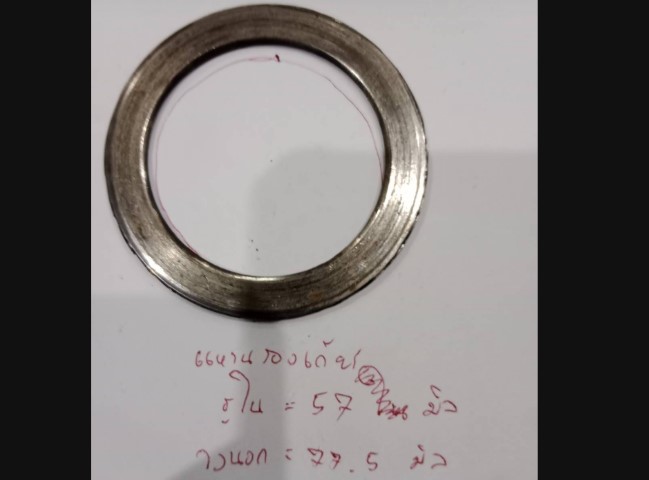 แหวนรองเกียร์
รูใน = 57 มิล
วงนอก = 77.5 มิล